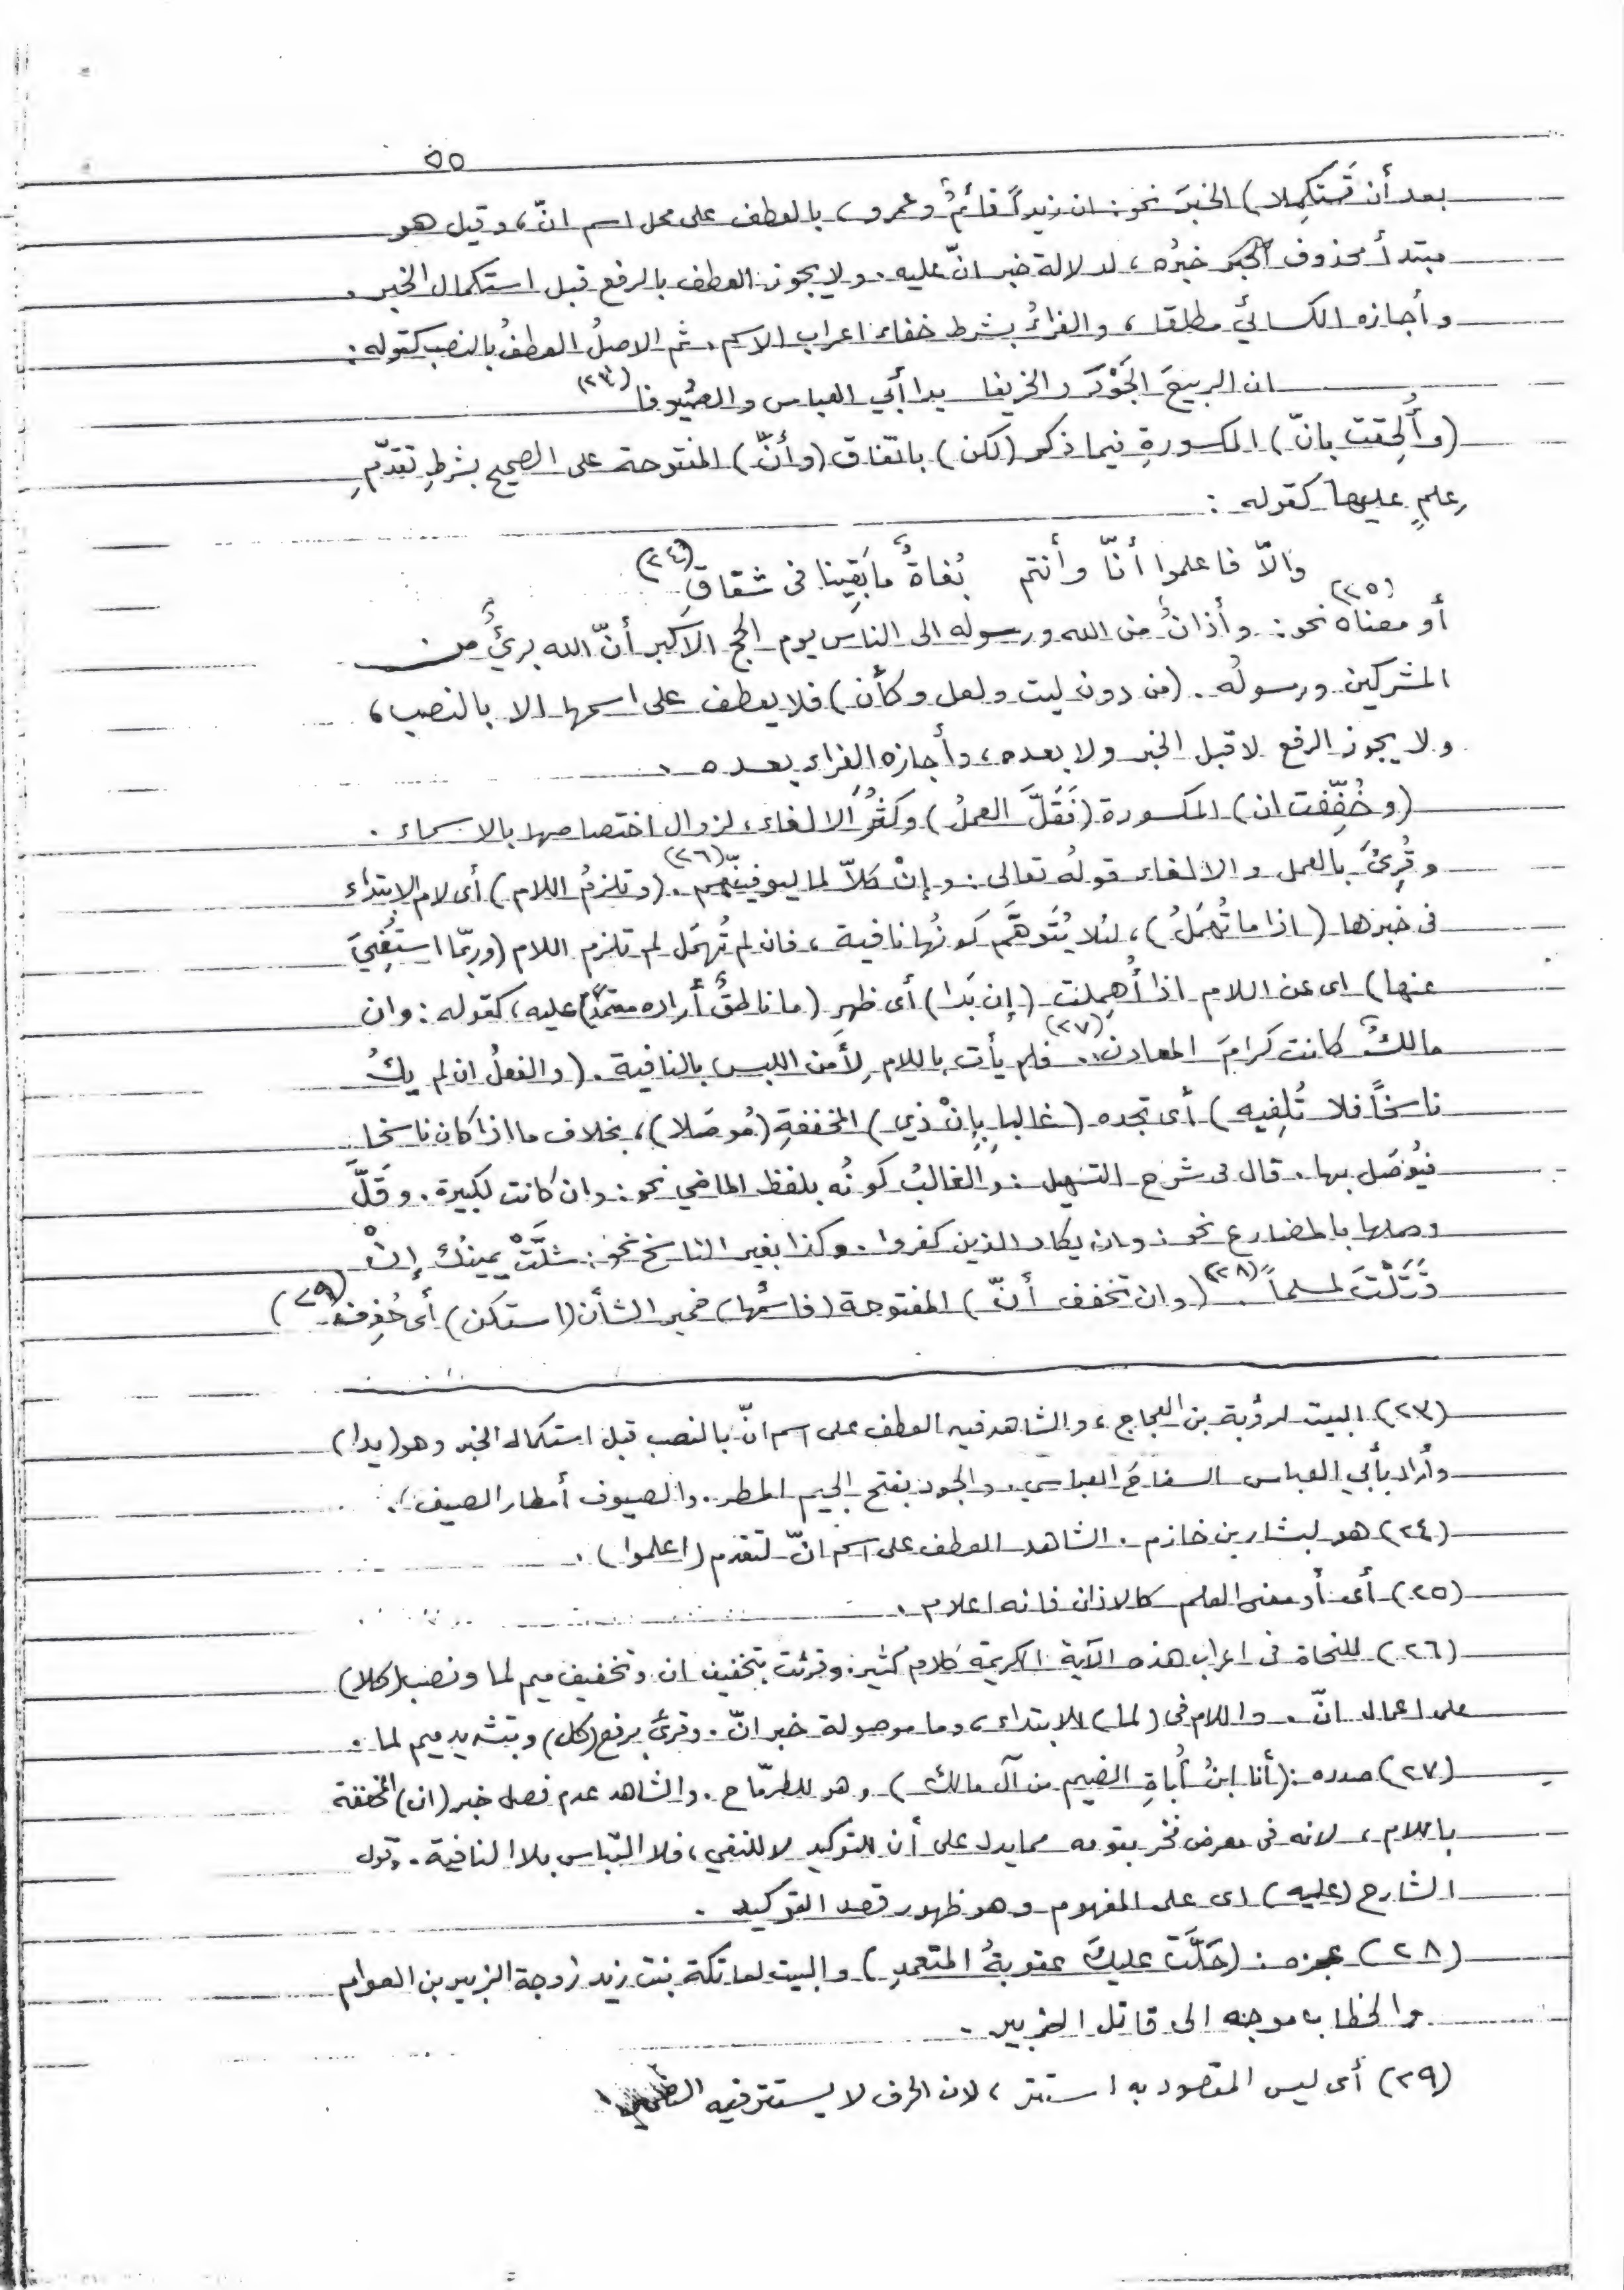 ٥٥
بعد أن تَستكمِلا) الخبرَ نحو: ان زيداً قائمٌ وعمرو، بالعطف على محل اسم انّ، وقيل هو
مبتدأ محذوف خبرُه، لدلالة خبر انّ عليه. ولا يجوز العطف بالرفع قبل استكمال الخبر.
وأجازه الكسائي مطلقا، والفراءُ بشرط خفاء اعراب الاسم. ثم الاصلُ العطفُ بالنصب كقوله:
ان الربيعَ الجَوْدَ والخريفا يدا أبي العباس والصُيوفا (٢٣)
(وأُلحِقت بانّ) المكسورةِ فيما ذكر (لكن) باتفاق (وأنّ) المفتوحة على الصحيح بشرطِ تقدّمِ
عِلمٍ عليها كقوله:
والاّ فاعلموا أنّا وأنتم بُغاةٌ ما بَقِينا فى شقاقِ (٢٤)
أو معناه (٢٥) نحو: وأذانٌ من الله ورسوله الى الناس يوم الحج الاكبر أنّ الله بريءٌ من
المشركين ورسولُه. (من دون ليت ولعل وكأن) فلا يعطف على اسمها الا بالنصب،
ولا يجوز الرفع لا قبل الخبر ولا بعده، وأجازه الفراء بعده.
(وخُفِّفت ان) المكسورة (فَقَلَّ العملُ) وكثُرَ الالغاء، لزوال اختصاصها بالاسماء.
وقُرِئَ بالعمل والالغاء قولُه تعالى: وإنْ كلاّ لما ليوفينّهم (٢٦). (وتلزمُ اللام) أى لام الابتداء
فى خبرها (اذا ما تُهمَلُ)، لئلا يُتَوهَّم كونُها نافية، فان لم تُهمَل لم تلزم اللام (وربّما استُغنِيَ
عنها) اى عن اللام اذا أُهمِلت (إن بَدا) أى ظهر (ما ناطقٌ أراده معتمدًا) عليه، كقوله: وان
مالكٌ كانت كرامَ المعادن (٢٧). فلم يأت باللام لِأَمن اللبس بالنافية. (والفعلُ ان لم يكُ
ناسخاً فلا تُلفِيه) أى تجده (غالبا بِإنْ ذي) المخففةِ (مُوصَلا)، بخلاف ما اذا كان ناسخا
فيُوصَل بها. قال فى شرح التسهيل: والغالبُ كونُه بلفظ الماضي نحو: وان كانت لكبيرة. وقَلَّ
وصلها بالمضارع نحو: وان يكاد الذين كفروا. وكذا بغير الناسخ نحو: شلَّتْ يمينُك إنْ
قَتَلْتَ لمسلماً (٢٨). (وان تخفف أنّ) المفتوحة (فاسمُها) ضمير الشأن (استكن) أى حُذِف (٢٩)
(٢٣) البيت لرؤبة بن العجاج، والشاهد فيه العطف على اسم انّ بالنصب قبل استكمال الخبر وهو (يدا)
وأراد بأبي العباس السفاحَ العباسي. والجود بفتح الجيم المطر. والصيوف أمطار الصيف).
(٢٤) هو لبشار بن خازم. الشاهد العطف على اسم انّ لتقدم (اعلموا).
(٢٥) أى أو معنى العلم كالاذان فانه اعلام.
(٢٦) للنحاة فى اعراب هذه الآية الكريمة كلام كثير. وقرئت بتخفيف ان وتخفيف ميم لما ونصب (كلا)
على اعمال انّ. واللام فى (لما) للابتداء، وما موصولة خبر انّ. وقرئ برفع (كل) وبتشديد ميم لما.
(٢٧) صدره: (أنا ابنُ أُباةِ الضيم من آل مالك) وهو للطرمّاح. والشاهد عدم فصل خبر (ان) المخففة
باللام، لانه فى معرض فخر بقومه مما يدل على أن للتوكيد لا للنفي، فلا التباس بلا النافية. وقول
الشارح (عليه) اى على المفهوم وهو ظهور قصد التوكيد.
(٢٨) عجزه: (حَلَّت عليكَ عقوبةُ المتعمدِ) والبيت لعاتكة بنت زيد زوجة الزبير بن العوام
والخطاب موجه الى قاتل الزبير.
(٢٩) أى ليس المقصود به استتر، لان الحرف لا يستتر فيه